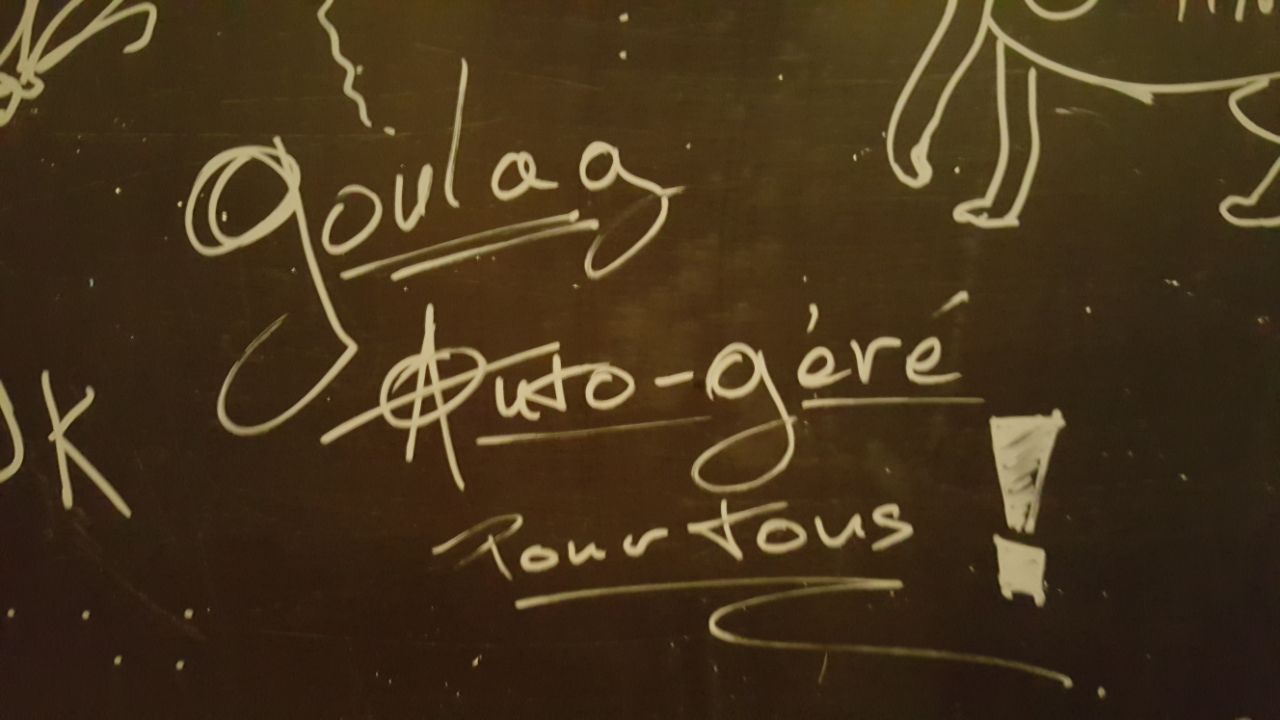 goulag
Auto-géré
Pour tous !
JK